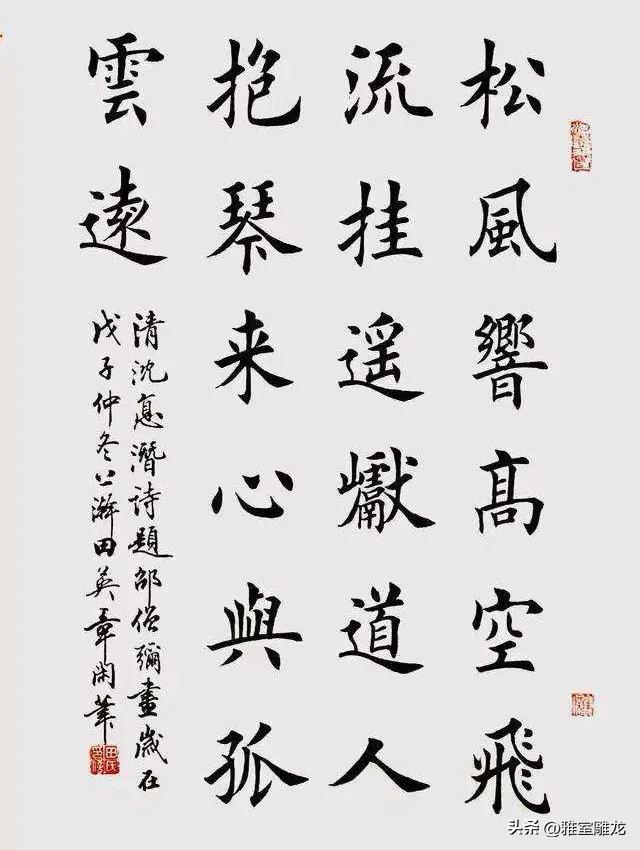 松風響高空飛
流挂遥巘道人
抱琴来心與孤
雲遠
清沈悳潛詩題邵僧彌畫歲在
戊子仲冬公瀚田英章閑筆
头条@雅室雕龙